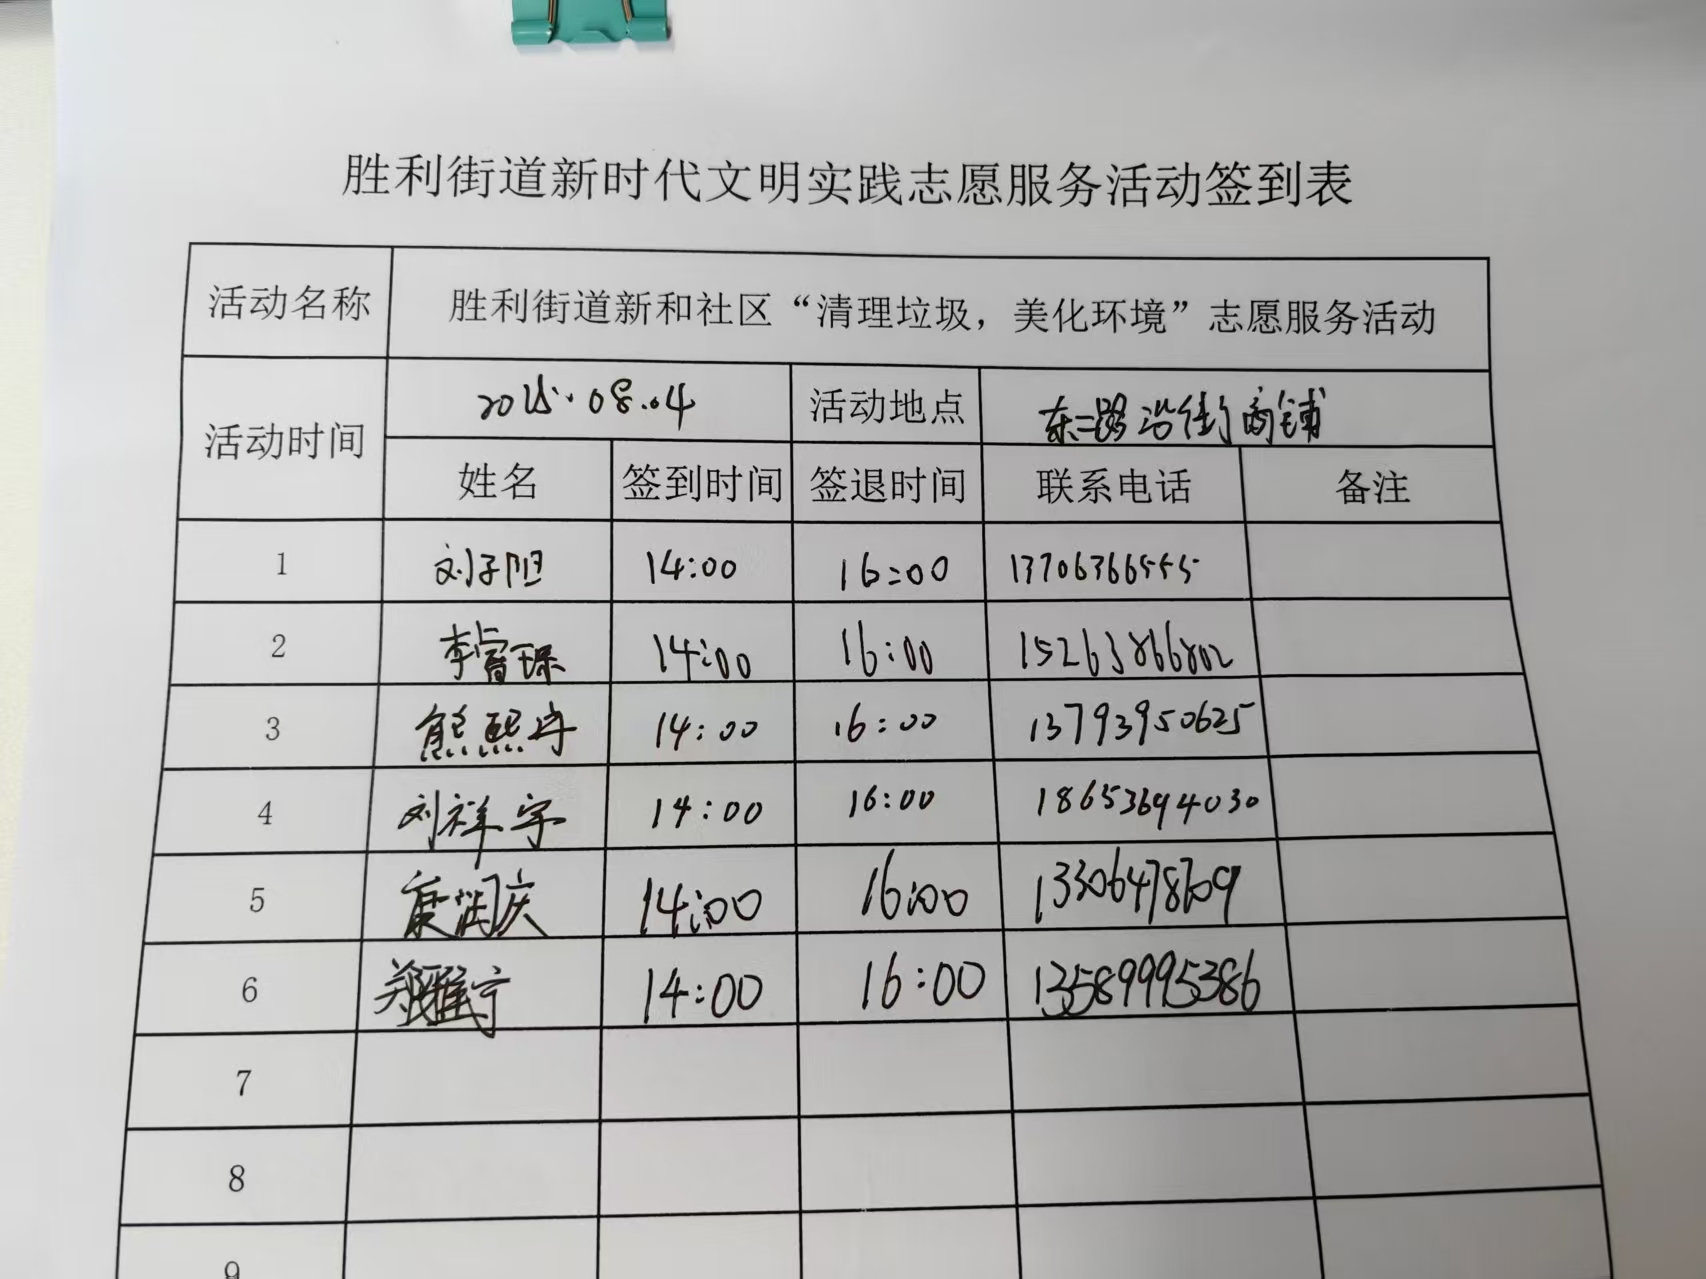 胜利街道新时代文明实践志愿服务活动签到表
活动名称 胜利街道新和社区“清理垃圾，美化环境”志愿服务活动
活动时间 2025.08.04 活动地点 东二路沿街商铺
姓名 签到时间 签退时间 联系电话 备注
1 刘子阳 14:00 16:00 13706366555
2 李睿琛 14:00 16:00 15263866802
3 熊熙宇 14:00 16:00 13793950625
4 刘祥宇 14:00 16:00 18653694030
5 14:00 16:00 13306478709
6 郑雅宁 14:00 16:00 13589995386
7
8
9